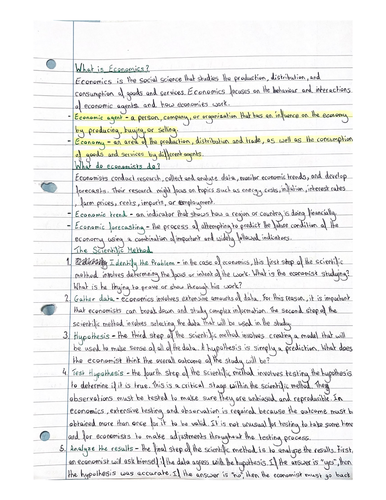 What is Economics?
Economics is the social science that studies the production, distribution, and
consumption of goods and services. Economics focuses on the behaviour and interactions
of economic agents and how economies work.
- Economic agent - a person, company, or organization that has an influence on the economy
by producing, buying, or selling.
- Economy - an area of the production, distribution and trade, as well as the consumption
of goods and services by different agents.
What do economists do?
Economists conduct research, collect and analyze data, monitor economic trends, and develop
forecasts. Their research might focus on topics such as energy costs, inflation, interest rates
, farm prices, rents, imports, or employment.
- Economic trend - an indicator that shows how a region or country is doing financially
- Economic forecasting - the process of attempting to predict the future condition of the
economy using a combination of important and widely followed indicators.
The Scientific Method
1. Identify the Problem - in the case of economics, this first step of the scientific
method involves determining the focus or intent of the work. What is the economist studying?
What is he trying to prove or show through his work?
2. Gather data - economics involves extensive amounts of data. For this reason, it is important
that economists can break down and study complex information. The second step of the
scientific method involves selecting the data that will be used in the study.
3. Hypothesis - the third step of the scientific method involves creating a model that will
be used to make sense of all of the data. A hypothesis is simply a prediction. What does
the economist think the overall outcome of the study will be?
4. Test Hypothesis - the fourth step of the scientific method involves testing the hypothesis
to determine if it is true. This is a critical stage within the scientific method. The
observations must be tested to make sure they are unbiased and reproducible. In
economics, extensive testing and observation is required because the outcome must be
obtained more than once for it to be valid. It is not unusual for testing to take some time
and for economists to make adjustments throughout the testing process.
5. Analyze the results - the final step of the scientific method is to analyze the results. First,
an economist will ask himself if the data agrees with the hypothesis. If the answer is "yes", then
the hypothesis was accurate. If the answer is "no", then the economist must go back